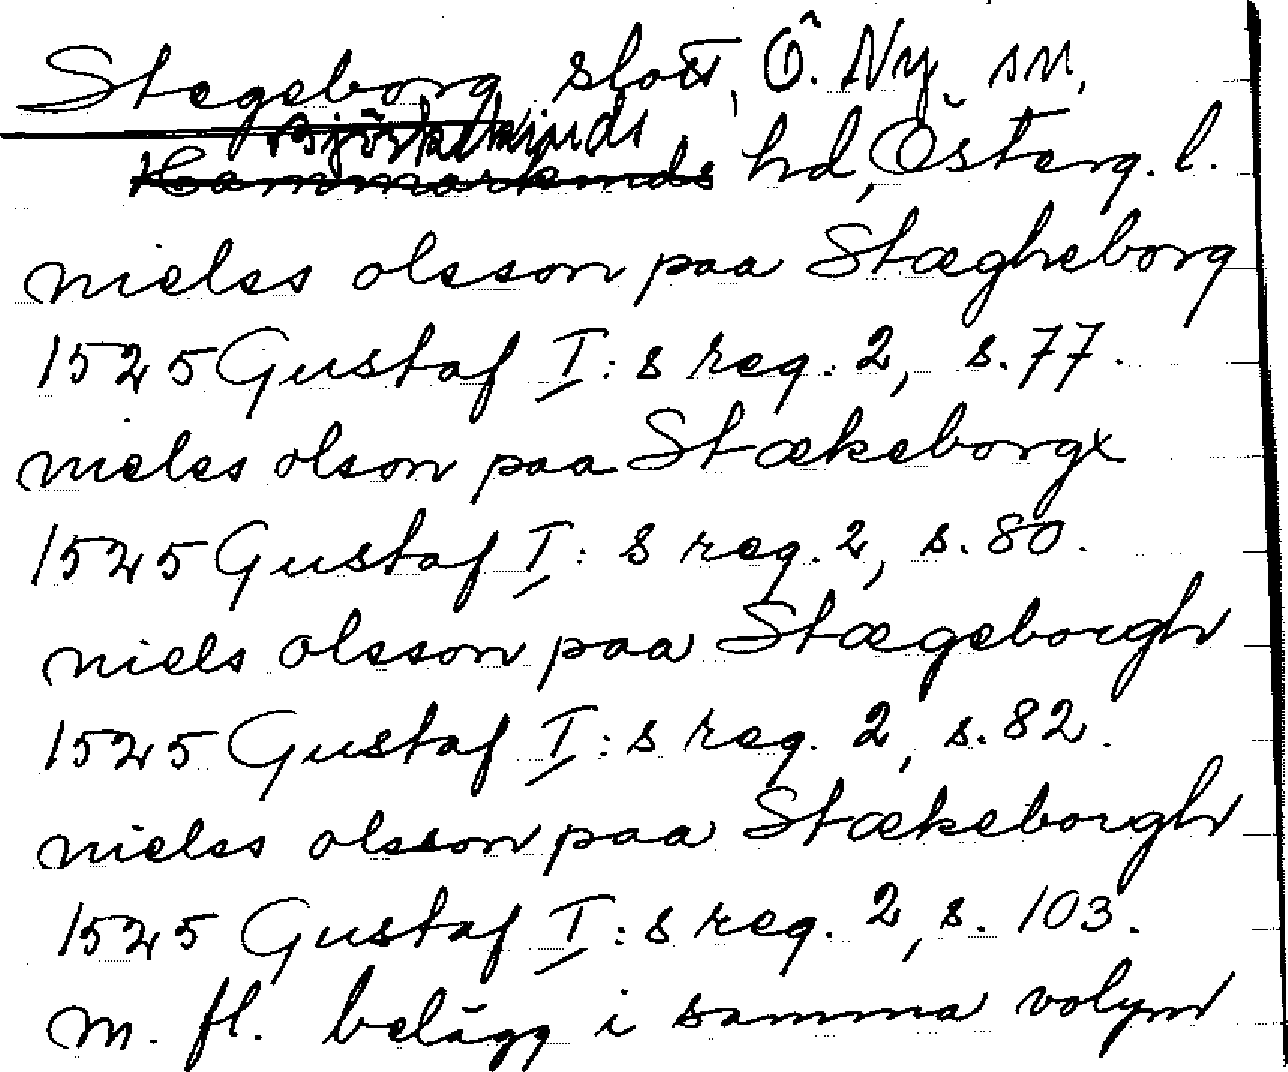 Stegeborg slott, Ö. Ny sn,
Björkekinds
Hammarkinds hd, Österg. l.
nielss olsson paa Stægheborg
1525 Gustaf I:s reg. 2, s. 77.
nielss olson paa Stækeborgx
1525 Gustaf I:s reg. 2, s. 80.
niels olsson paa Stægeborgh
1525 Gustaf I:s reg. 2, s. 82.
nielss olsson paa Stækeborgh
1525 Gustaf I:s reg. 2, s. 103.
m. fl. belägg i samma volym